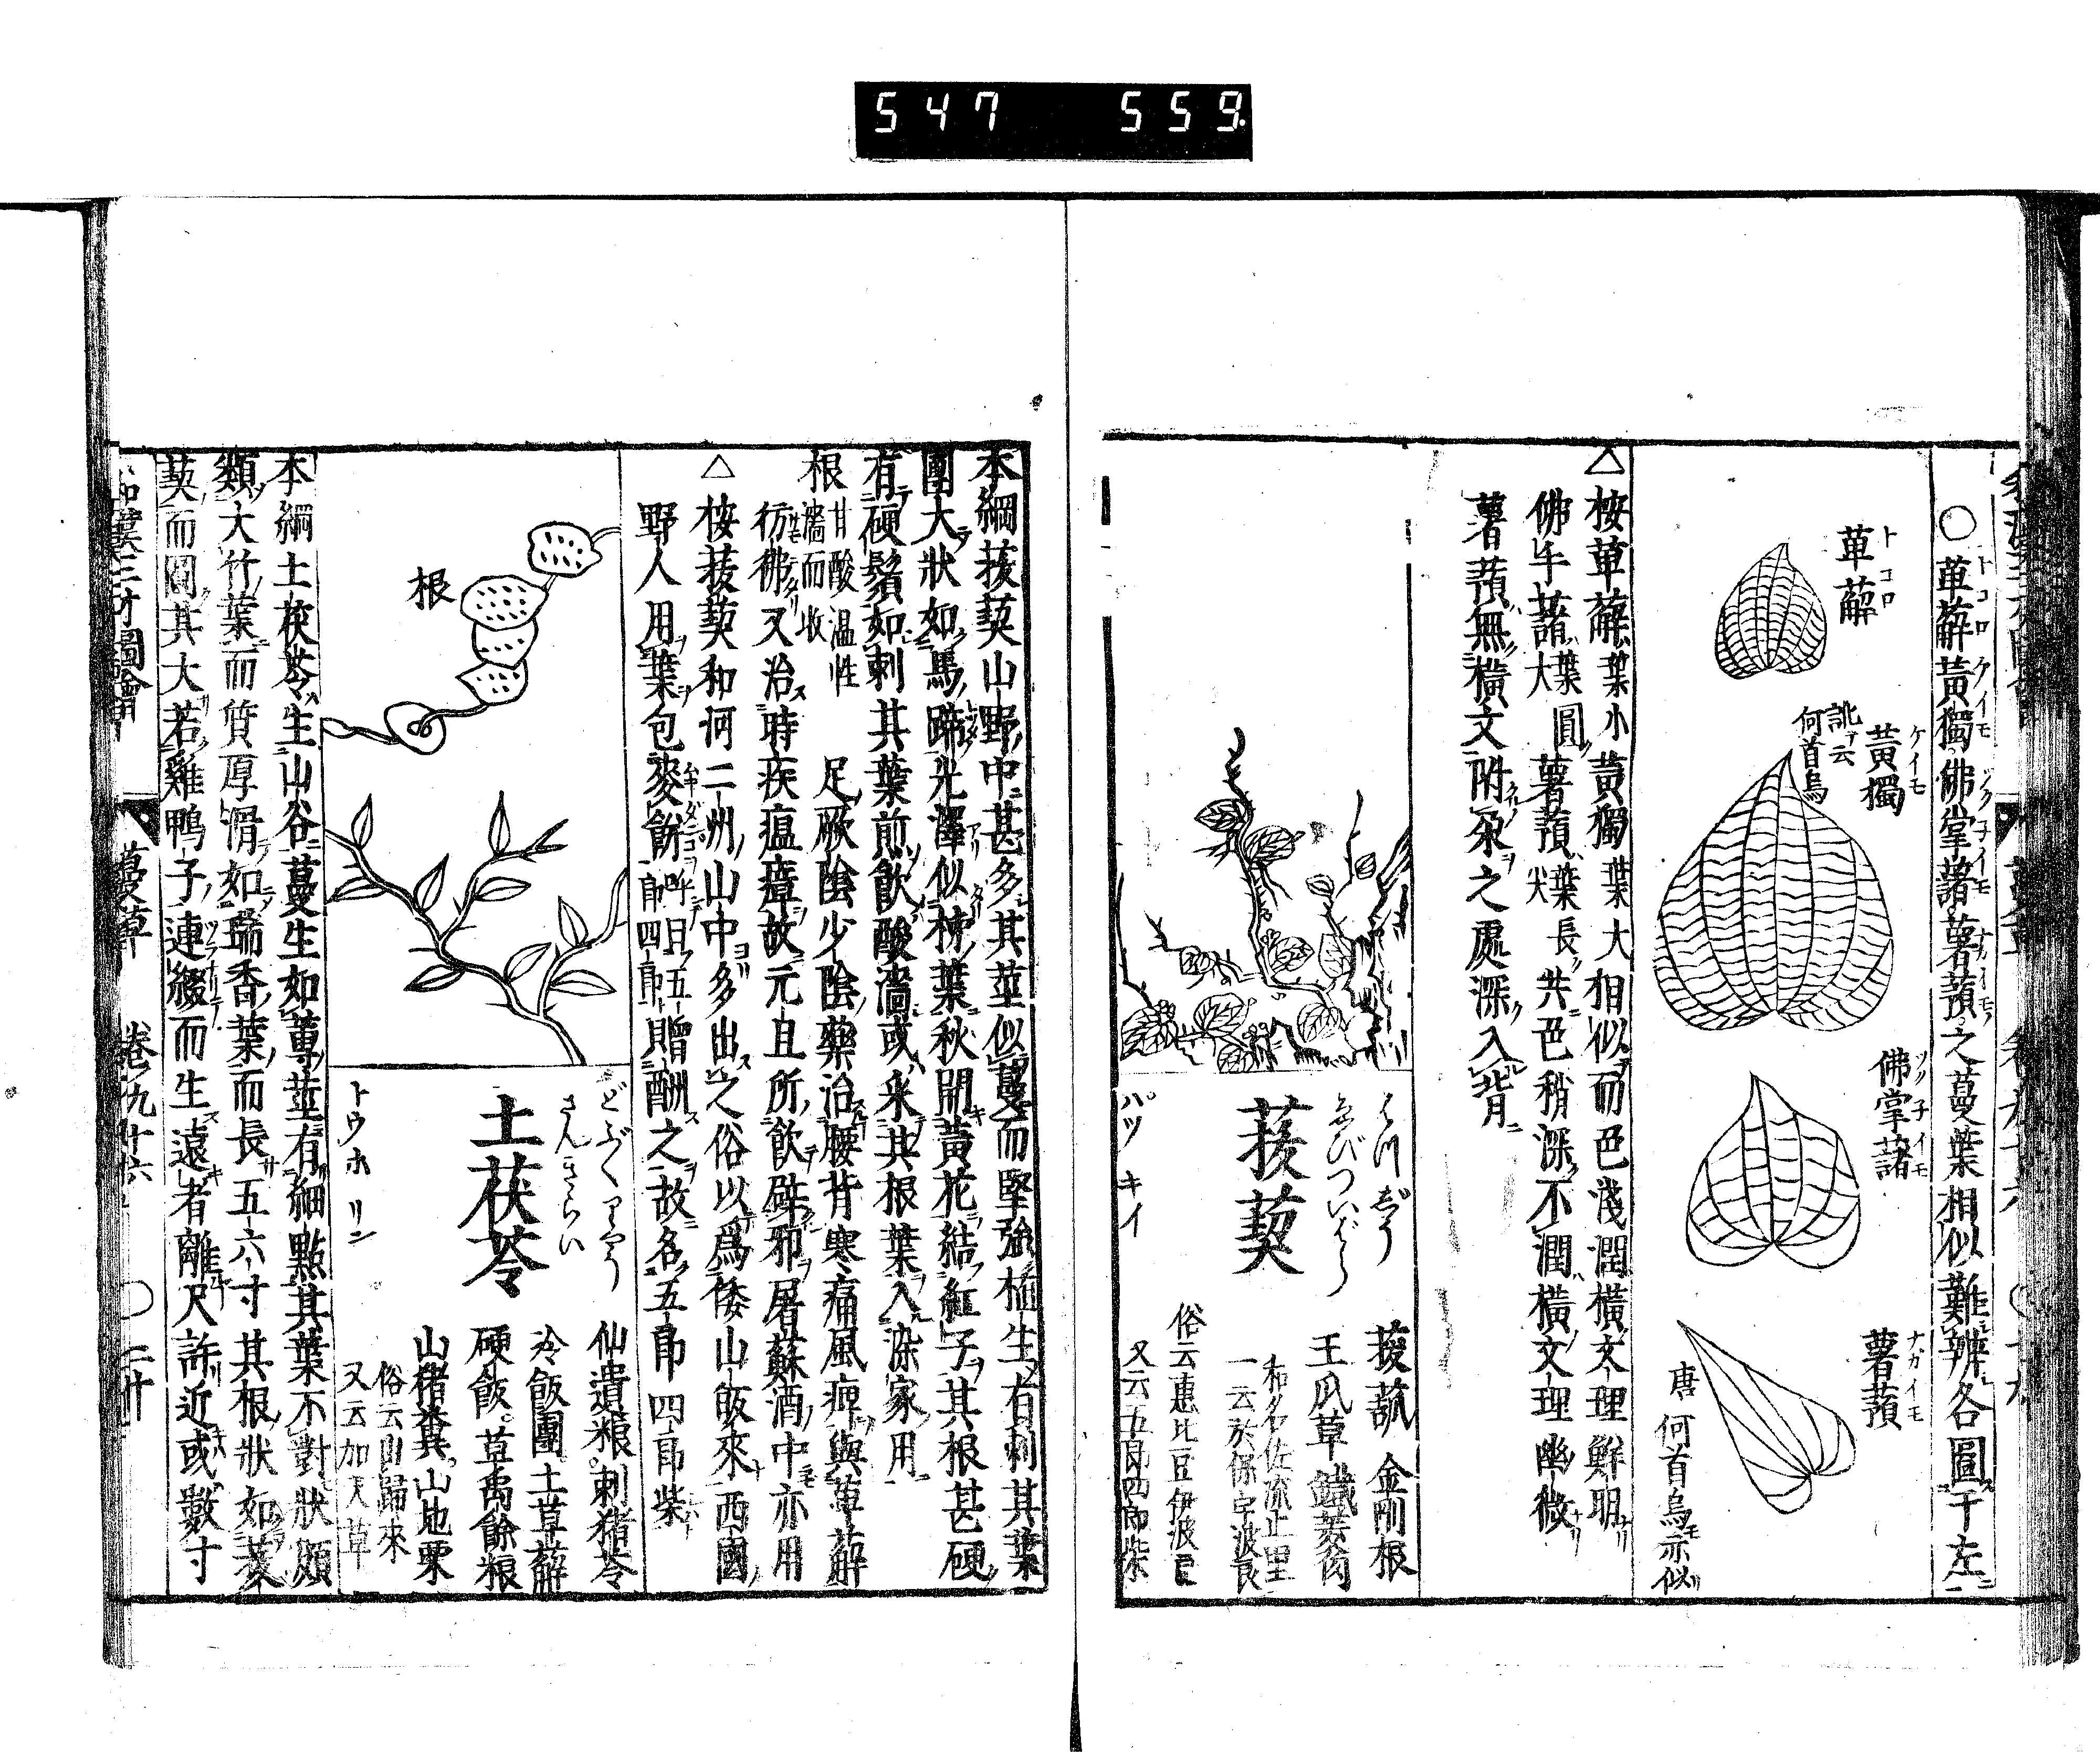 547 559
○萆薢黄獨佛掌藷薯蕷之蔓葉相似難辨各圖于左
トコロ ケイモ ツク子イモ ナガイモ
萆薢
トコロ
黄獨
ケイモ
訛云
何首烏
佛掌藷
ツク子イモ
薯蕷
ナガイモ
唐何首烏モ亦似
△桉萆薢葉小黄獨葉大相似而色淺潤橫文理鮮明
佛手藷葉圓大薯蕷葉長尖共色稍深不潤橫文理幽微
薯蕷無橫文附朶之處深入背
菝葜
ゑびついばら
パツ キイ
菝䕡 金剛根
王瓜草 鐵菱角
和名佐流止里
一云於保宇波良
俗云惠比豆伊波良
又云五郎四郎柴
本綱菝葜山野中甚多其莖似蔓而堅強植生有刺其葉
團大狀如馬蹄光澤似柿葉秋開黃花結紅子其根甚硬
有硬鬚如刺其葉煎飮酸濇或采其根葉入染家用
根 甘酸温性濇而收 足厥陰少陰藥治腰背寒痛風痺與萆薢
彷彿又治時疾瘟瘴故元旦所飮辟邪屠蘇酒中亦用
△桉菝葜和河二州山中多出之俗以爲倭山皈來西國
野人用葉包麥餅呼曰五郎四郎贈酬之故名五郎四郎柴
根
土茯苓
どぶくりやう
さんきらい
トウ ホ リン
仙遺粮 刺猪苓
冷飯團 土萆薢
硬飯 草禹餘粮
山猪糞 山地栗
俗云山歸來
又云加天草
本綱土茯苓生山谷蔓生如蓴莖有細點其葉不對狀頗
類大竹葉而質厚滑如瑞香葉而長五六寸其根狀如菝
葜而圓其大若雞鴨子連綴而生遠者離尺許近或數寸
和漢三才圖會 蔓草 卷九十六 ○二十